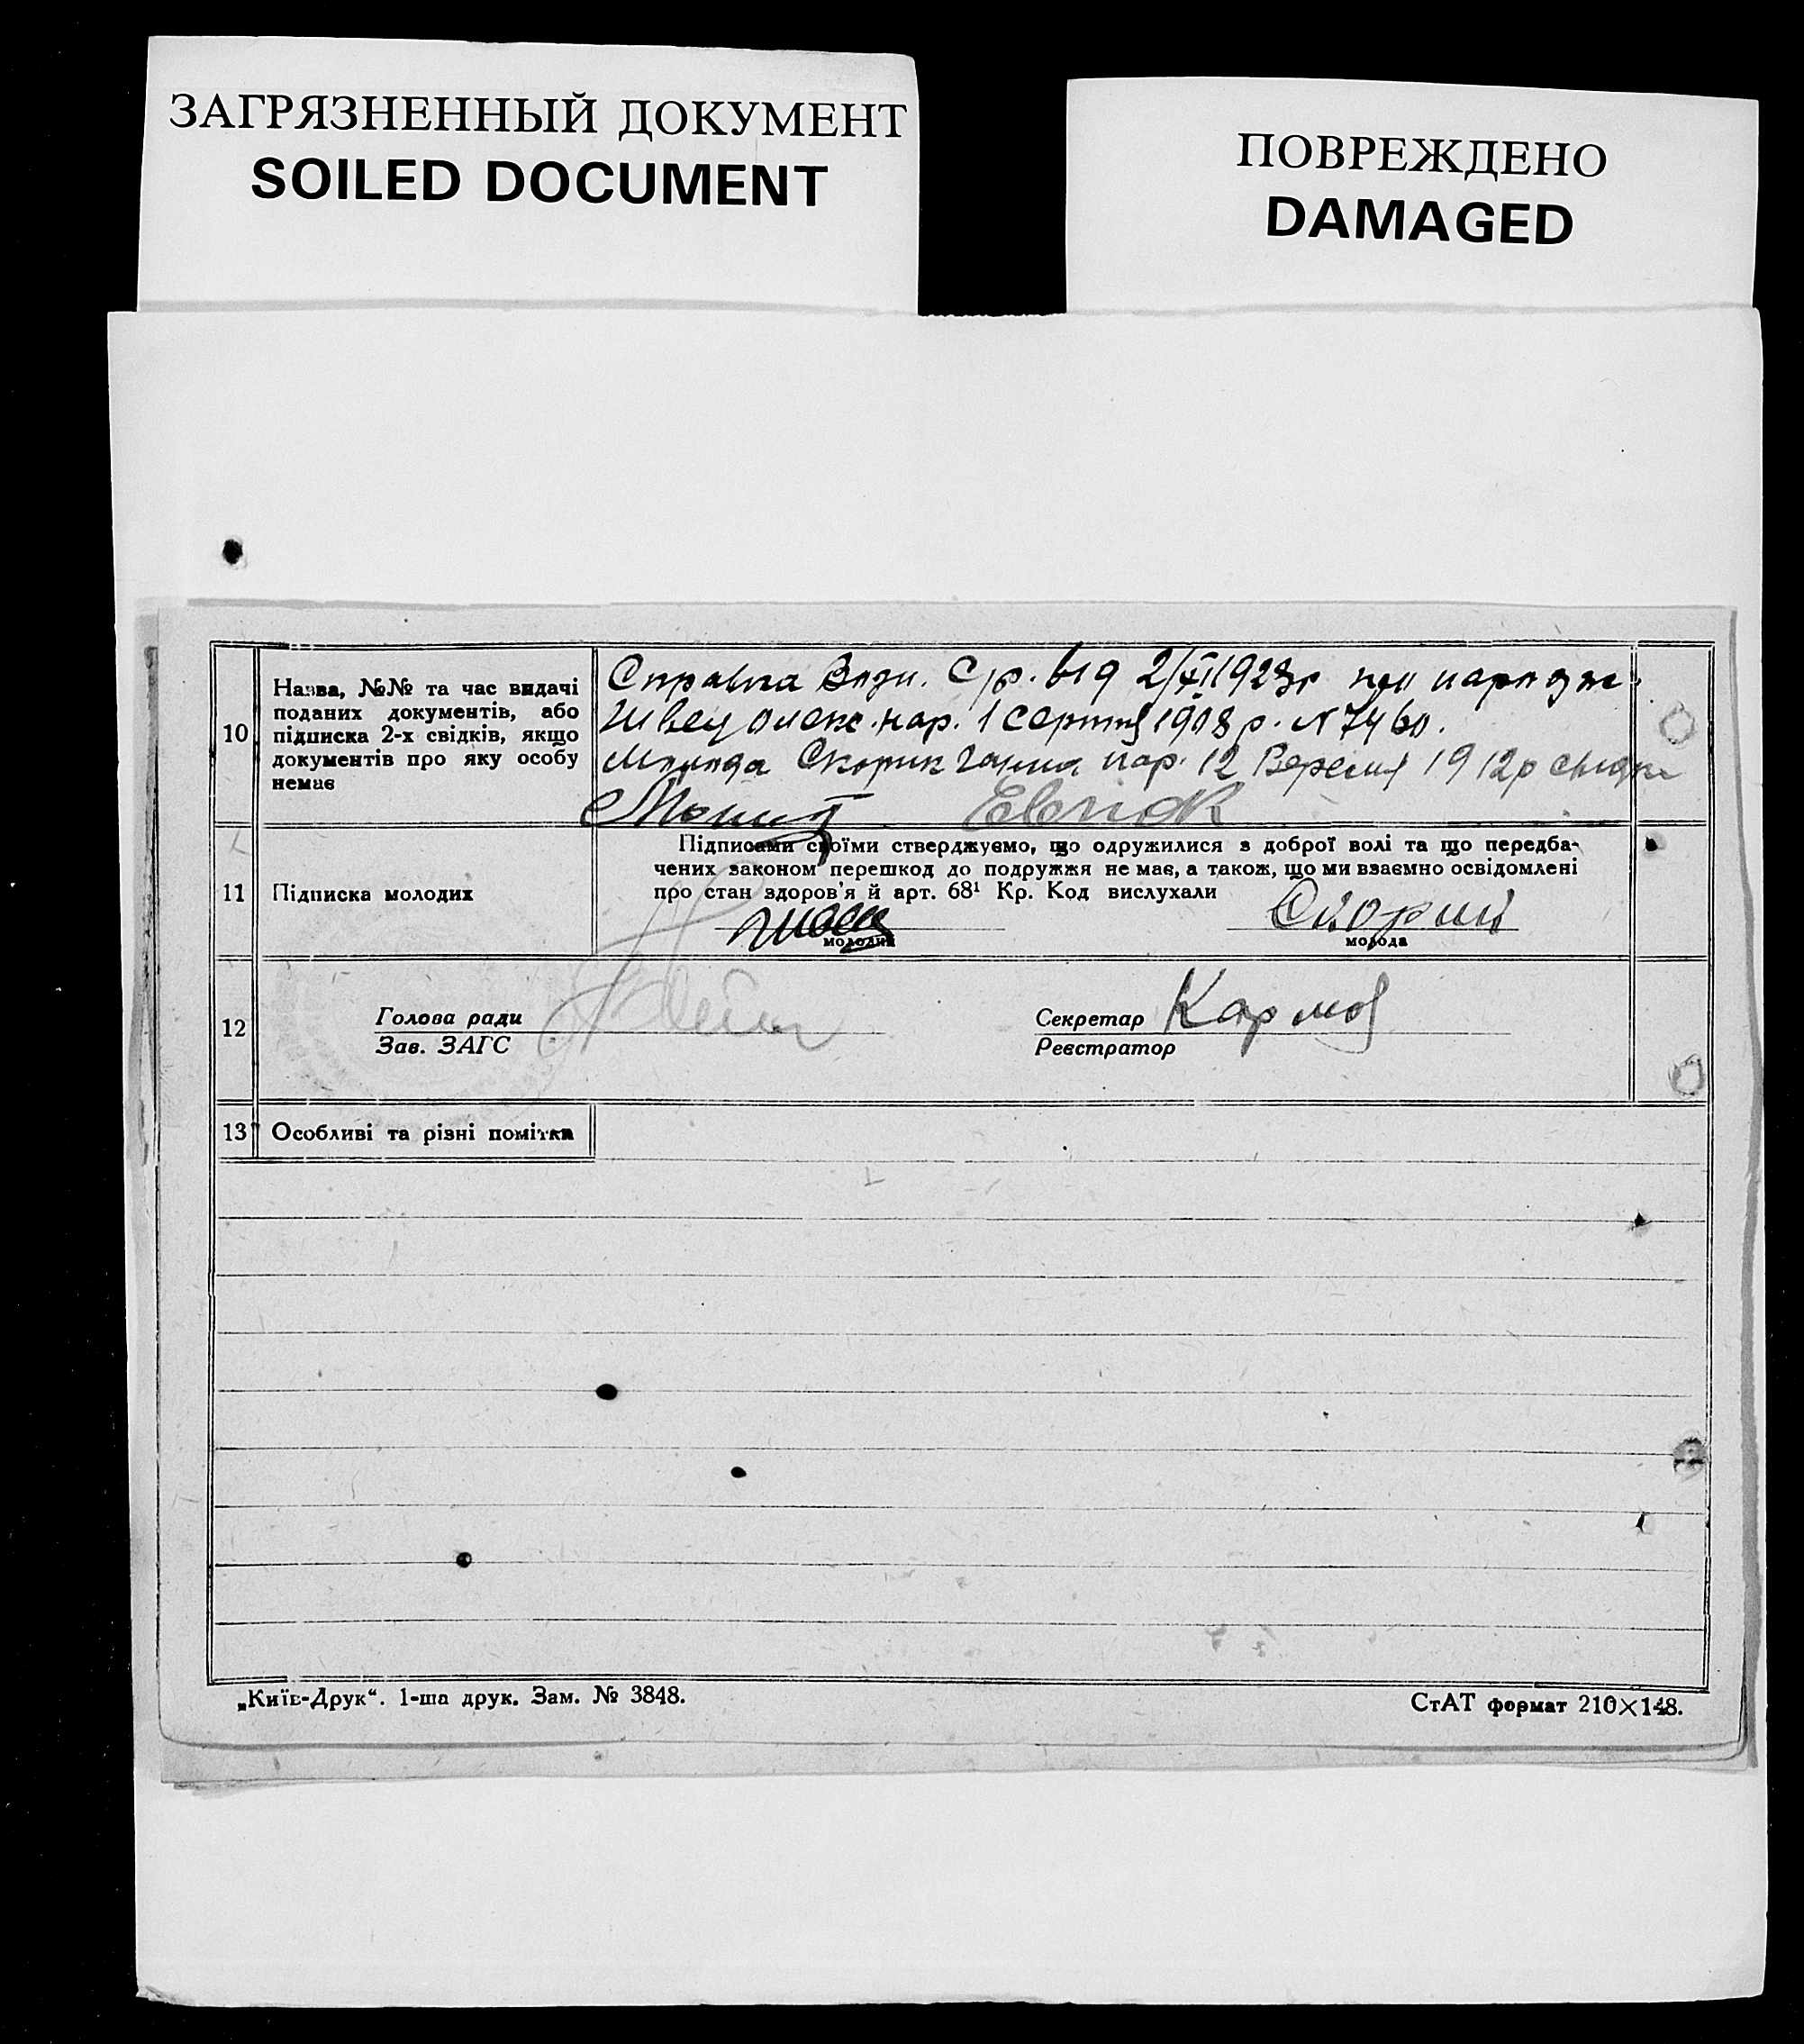 ЗАГРЯЗНЕННЫЙ ДОКУМЕНТ
SOILED DOCUMENT
ПОВРЕЖДЕНО
DAMAGED
10
Назва, №№ та час видачі
поданих документів, або
підписка 2-х свідків, якщо
документів про яку особу
немає
Справка С/р. від 2/XI 1923р про народж
Швец Олекс. нар. 1 серпня 1908 р. N 7460.
Молода Скорик Ганна нар. 12 Вересня 1912р свідки
11
Підписка молодих
Підписами своїми стверджуємо, що одружилися з доброї волі та що передба-
чених законом перешкод до подружжя не має, а також, що ми взаємно освідомлені
про стан здоров'я й арт. 68¹ Кр. Код вислухали
Скорик
молодий
молода
12
Голова ради
Зав. ЗАГС
Секретар
Реєстратор
13
Особливі та різні помітки
„Київ-Друк“. 1-ша друк. Зам. № 3848.
СтАТ формат 210×148.